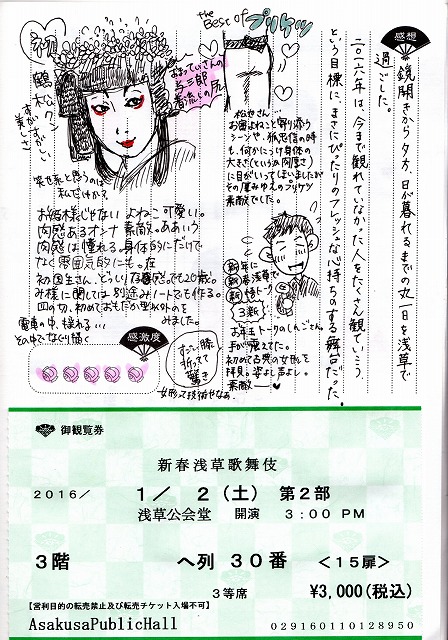 感想
鏡開きから夕方、日が暮れるまでの丸一日を浅草で
過ごした。
二〇一六年は、今まで観れていなかった人をたくさん観ていこう、
という目標に、まさにぴったりのフレッシュな心持ちのする舞台だった。
the Best of プリケツ
初鶴松クン
すがすがしい
美しさ
笑也系と思うのは
私だけか?
与三郎
着流しの尻
松也さん…
お富よねこと寄り添う
シーンや、狐忠信の時
も、何かにつけ身体の
大きさ(というか肉厚さ)
に目がいってしまいましたが
その厚みゆえのプリケツ
素敵でした。
お姫様じゃない よねこ 可愛い。
肉感あるオンナ 素敵。ああいう
肉感は憧れる。身体的にだけで
なく雰囲気的にも。
初国生さん、どっしりな感じでも20歳。
み様に関しては別途みノートでも作る。
四の切、初めておもだか型以外のを
みました。
電車の中、揺れる…
その中でなぐり描く
新年に
新春浅草で
新悟トーク
3新
お年玉トークのしんごさん。
手が震えてた。
初めてる兴の女形を
拝見。姿よし声よし。
素敵
感激度
すごい膝
折ってて
驚き
女形って技術やなぁ。
御観覧券
新春浅草歌舞伎
2016/ 1/2(土) 第2部
浅草公会堂 開演 3:00 PM
3階 へ列 30番 <15扉>
3等席 ¥3,000(税込)
【営利目的の転売禁止及び転売チケット入場不可】
AsakusaPublicHall 029160110128950